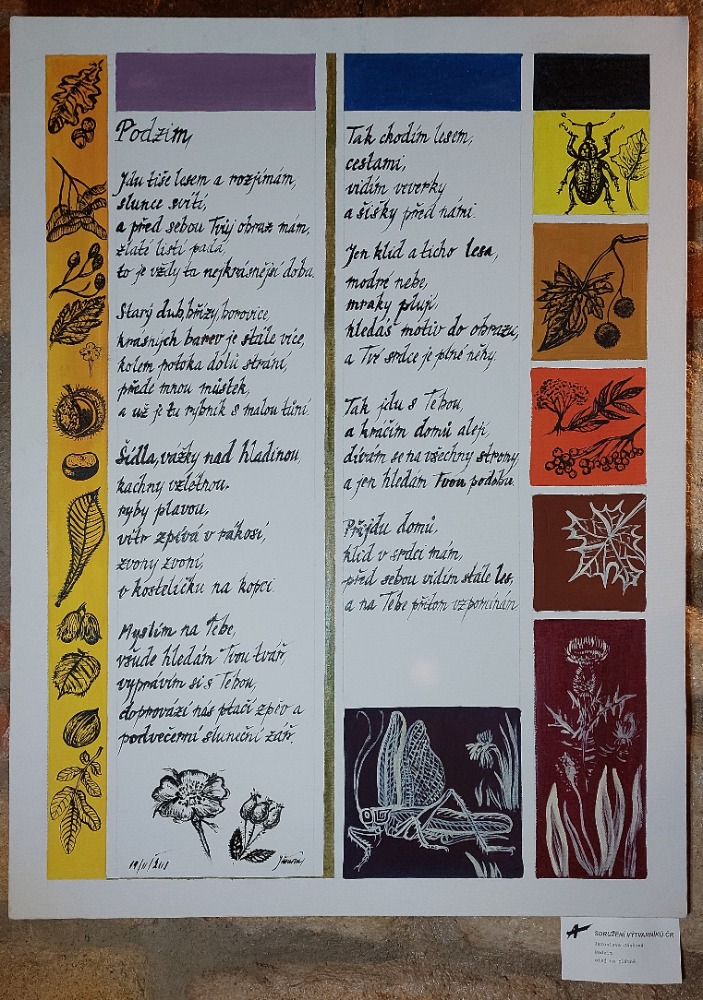 Podzim
Jdu tiše lesem a rozjímám,
slunce svítí,
a před sebou Tvůj obraz mám,
zlaté listí padá,
to je vždy ta nejkrásnější doba.
Starý dub, břízy, borovice,
krásných barev je stále více,
kolem potoka dolů strání,
přede mnou můstek,
a už je tu rybník s malou tůní.
Šídla, vážky nad hladinou,
kachny vzlétnou,
ryby plavou,
vítr zpívá v rákosí,
zvony zvoní,
v kostelíčku na kopci.
Myslím na Tebe,
všude hledám Tvou tvář,
vyprávím si s Tebou,
doprovází nás ptačí zpěv a
podvečerní sluneční zář.
Tak chodím lesem,
cestami,
vidím veverky
a šišky před námi.
Jen klid a ticho lesa,
modré nebe,
mraky plují,
hledáš motiv do obrazu,
a Tvé srdce je plné něhy.
Tak jdu s Tebou,
a kráčím domů alejí,
dívám se na všechny strany
a jen hledám Tvou podobu.
Přijdu domů,
klid v srdci mám,
před sebou vidím stále les,
a na Tebe přitom vzpomínám
SDRUŽENÍ VÝTVARNÍKŮ ČR
Podzim
olej na plátně